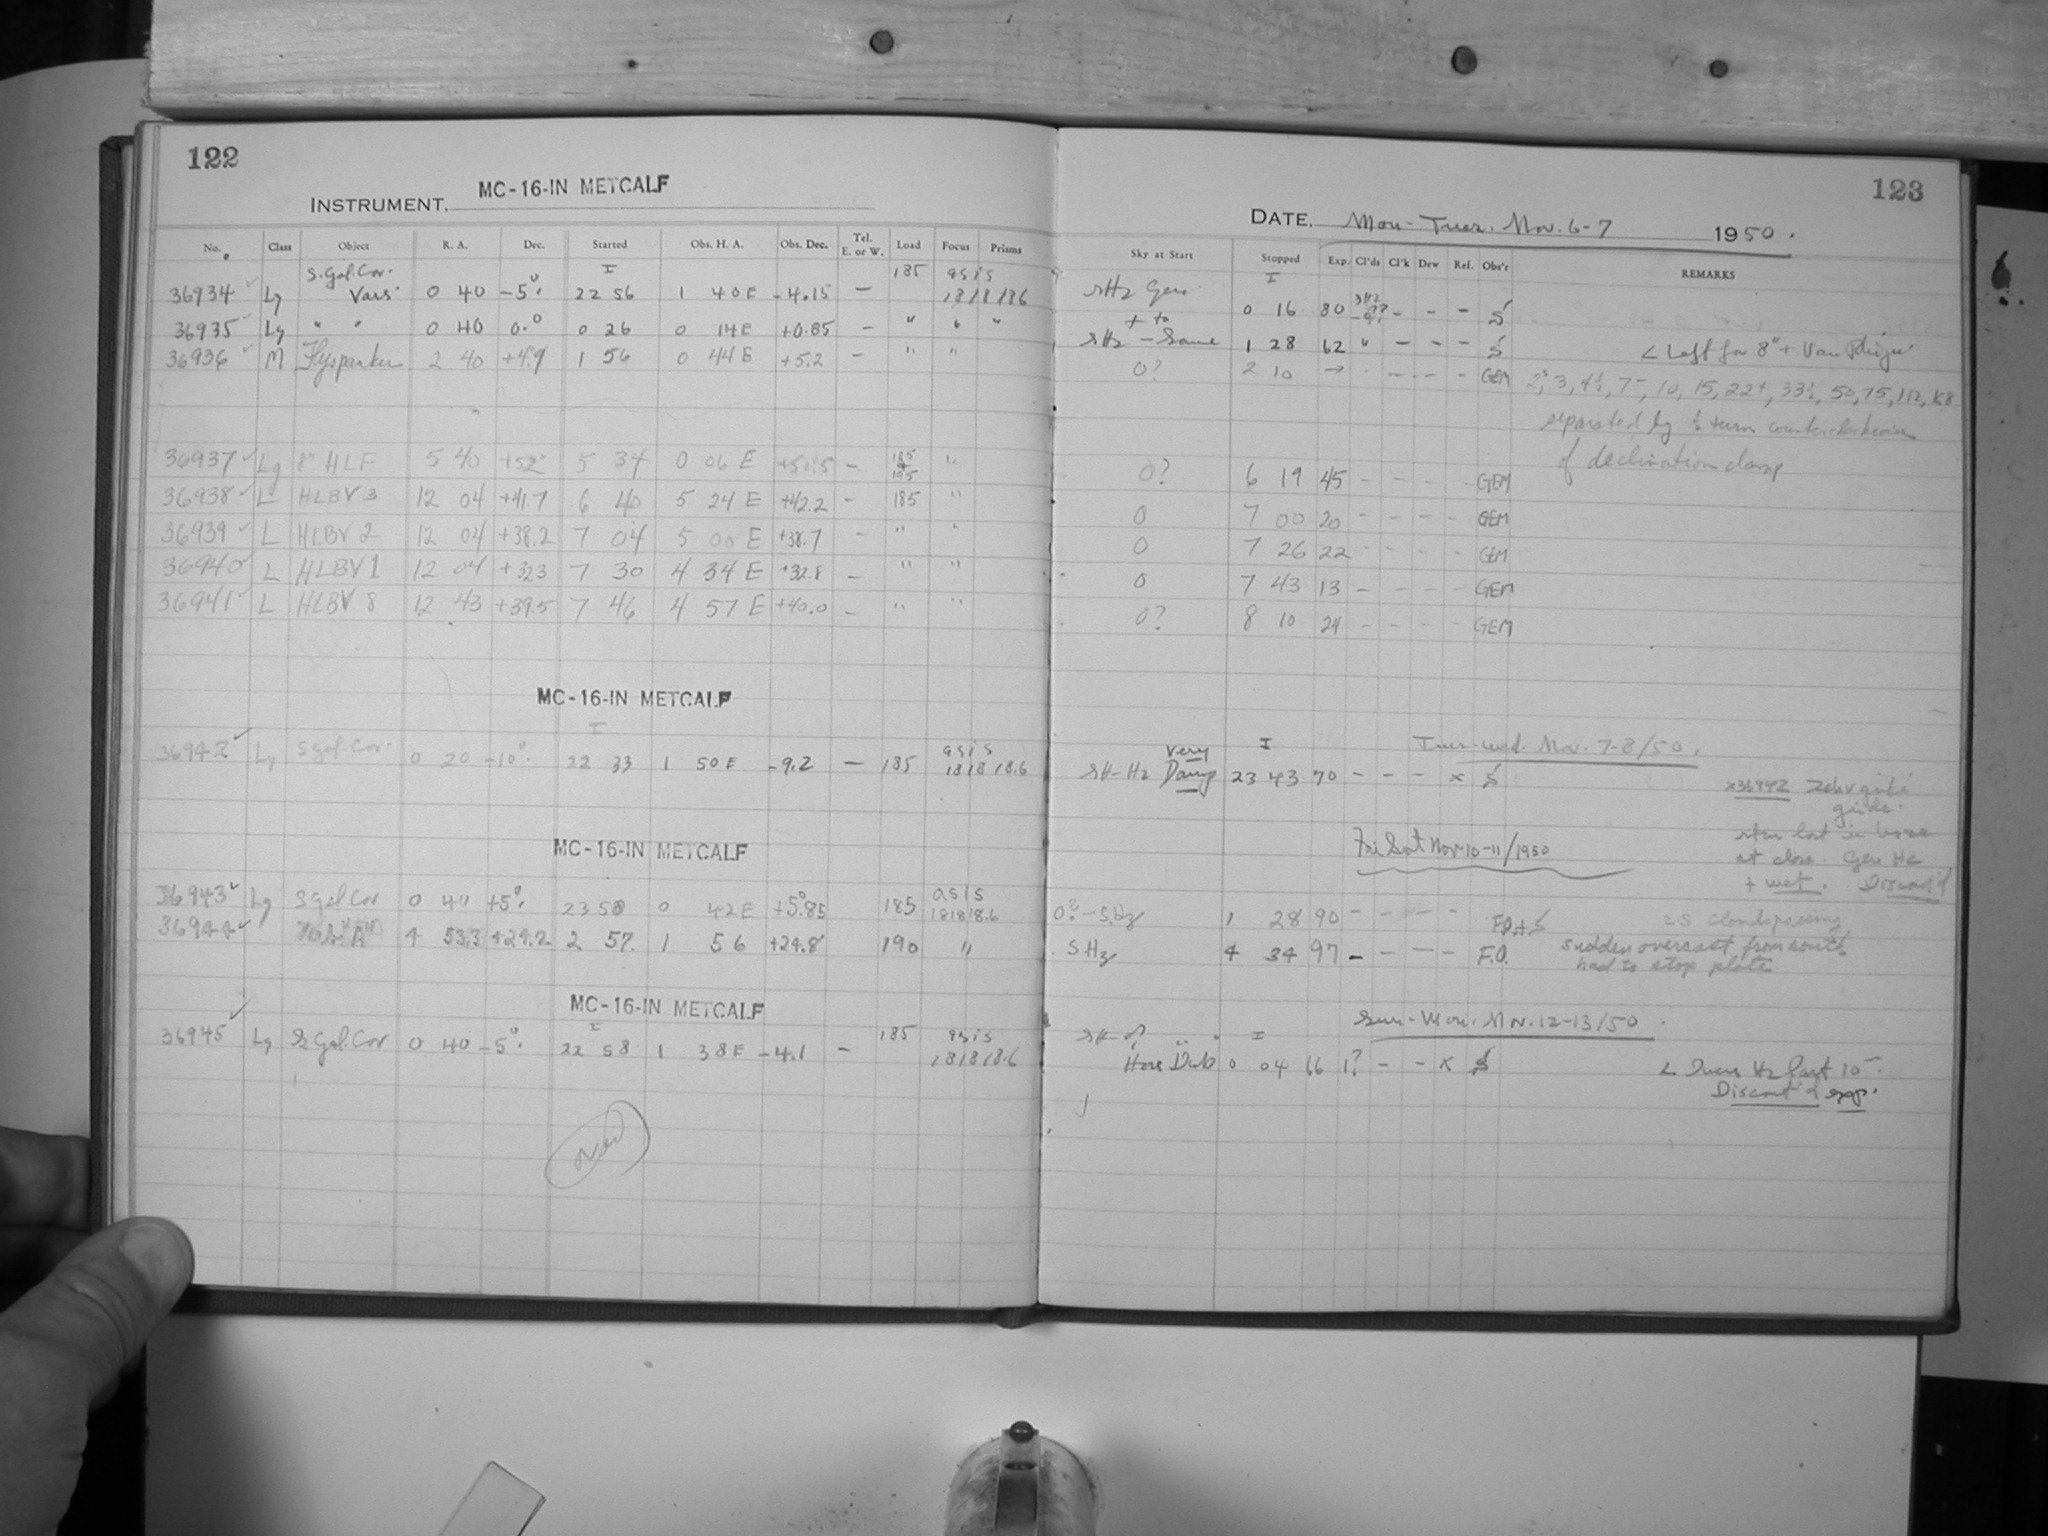 122
INSTRUMENT, MC-16-IN METCALF
No. Class Object R. A. Dec. Started Obs. H. A. Obs. Dec. Tel. E. or W. Load Focus Prisms
36934 Lg S. Gal. Cor. Vars 0 40 -5° 22 56 1 40 E -4.15 — 185 as is 18 18 18.6
36935 Lg " " 0 40 0.° 0 26 0 14 E +0.85 — " " "
36936 M Flyspanker 2 40 +4.7 1 56 0 44 E +5.2 — " "
36937 Lg 8" HLF 5 40 +52° 5 34 0 06 E +52.5 — "
36938 L HLBV 3 12 04 +41.7 6 40 5 24 E +42.2 - 185 "
36939 L HLBV 2 12 04 +38.2 7 04 5 00 E +38.7 - " "
36940 L HLBV 1 12 04 +32.3 7 30 4 34 E +32.8 - " "
36941 L HLBV 8 12 43 +39.5 7 46 4 57 E +40.0 - " "
MC-16-IN METCALF
I
36942 Lg S gal. Cor. 0 20 -10° 22 33 1 50 E -9.2 — 185 as is 18 18 18.6
MC-16-IN METCALF
36943 Lg S gal Cor 0 40 +5° 23 58 0 42 E +5.85 185 as is 18 18 18.6
36944 4 53.3 +24.2 2 57 1 56 +24.8 190 "
MC-16-IN METCALF
I
36945 Lg S Gal. Cor 0 40 -5° 22 58 1 38 E -4.1 — 185 as is 18 18 18.6
123
DATE, Mon-Tues. Nov. 6-7 1950.
Sky at Start Stopped Exp. Cl'ds Cl'k Dew Ref. Obs'r REMARKS
sHz Gen 0 16 80 - - - S
sHz - Same 1 28 62 " - - - S < Left for 8" + Van
0? 2 10 → - - - GEM 2, 3, 4½, 7-, 10, 15, 22+, 33½, 50, 75, 112, 168
separated by ½ turn counterclockwise
of declination clamp
0? 6 19 45 - - - - GEM
0 7 00 20 - - - - GEM
0 7 26 22 - - - - GEM
0 7 43 13 - - - - GEM
0? 8 10 24 - - - - GEM
Tues-Wed. Nov. 7-8/50.
very
sH-Hz Damp 23 43 70 - - - x S
x36942 guide
star lost in haze
at close. Gen Hz
+ wet. Discont'd
Fri Sat Nov 10-11/1950
0?-S.Hz 1 28 90 - - - - F.O.+S clouds passing
S Hz 4 34 97 - - - - F.O. sudden overcast from south
had to stop plate
Sun-Mon. Nov. 12-13/50
0 04 66 1? - - x S
< Hz last 10-.
Discont'd exp.